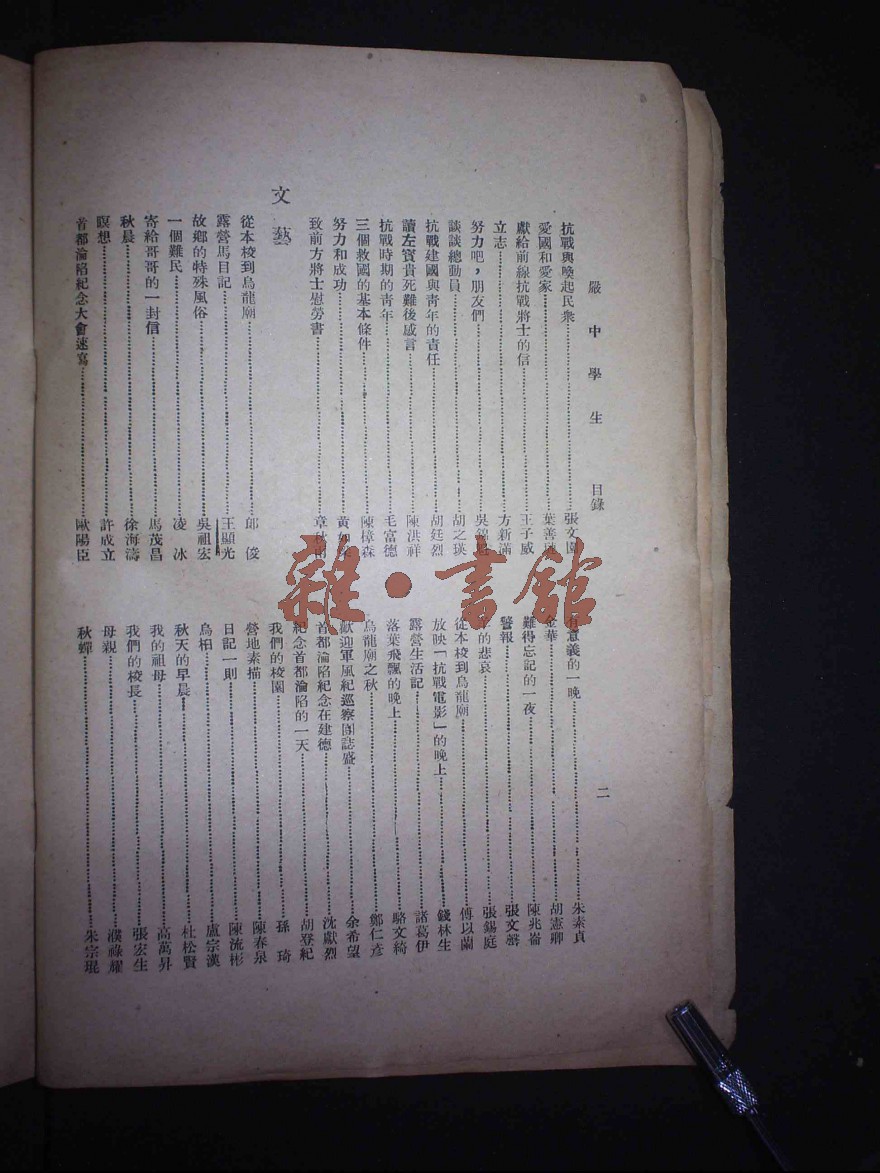 嚴中學生 目錄
二
抗戰與喚起民衆 張文園
愛國和愛家 葉善
獻給前線抗戰將士的信 王子威
立志 方新滿
努力吧，朋友們 吳錦
談談總動員 胡之瑛
抗戰建國與青年的責任 胡廷烈
讀左寶貴死難後感言 陳洪祥
抗戰時期的青年 毛富德
三個救國的基本條件 陳樟森
努力和成功 黃如
致前方將士慰勞書 章秋
文藝
從本校到烏龍廟 邱俊
露營馬目記 王顯光
故鄉的特殊風俗 吳祖宏
一個難民 凌冰
寄給哥哥的一封信 馬茂昌
秋晨 徐海濤
瞑想 許成立
首都淪陷紀念大會速寫 歐陽臣
有意義的一晚 朱素貞
金華 胡憲卿
難得忘記的一夜 陳兆崙
警報 張文馨
的悲哀 張錫庭
從本校到烏龍廟 傅以蘭
放映「抗戰電影」的晚上 錢林生
露營生活記 諸葛伊
落葉飛飄的晚上 駱文綺
烏龍廟之秋 鄭仁彥
歡迎軍風紀巡察團誌盛 余希望
首都淪陷紀念在建德 沈獻烈
紀念首都淪陷的一天 胡登紀
我們的校園 孫琦
營地素描 陳春泉
日記一則 陳流彬
烏桕 盧宗漢
秋天的早晨 杜松賢
我的祖母 高萬昇
我們的校長 張宏生
母親 濮祿耀
秋蟬 朱宗琨
雜·書館